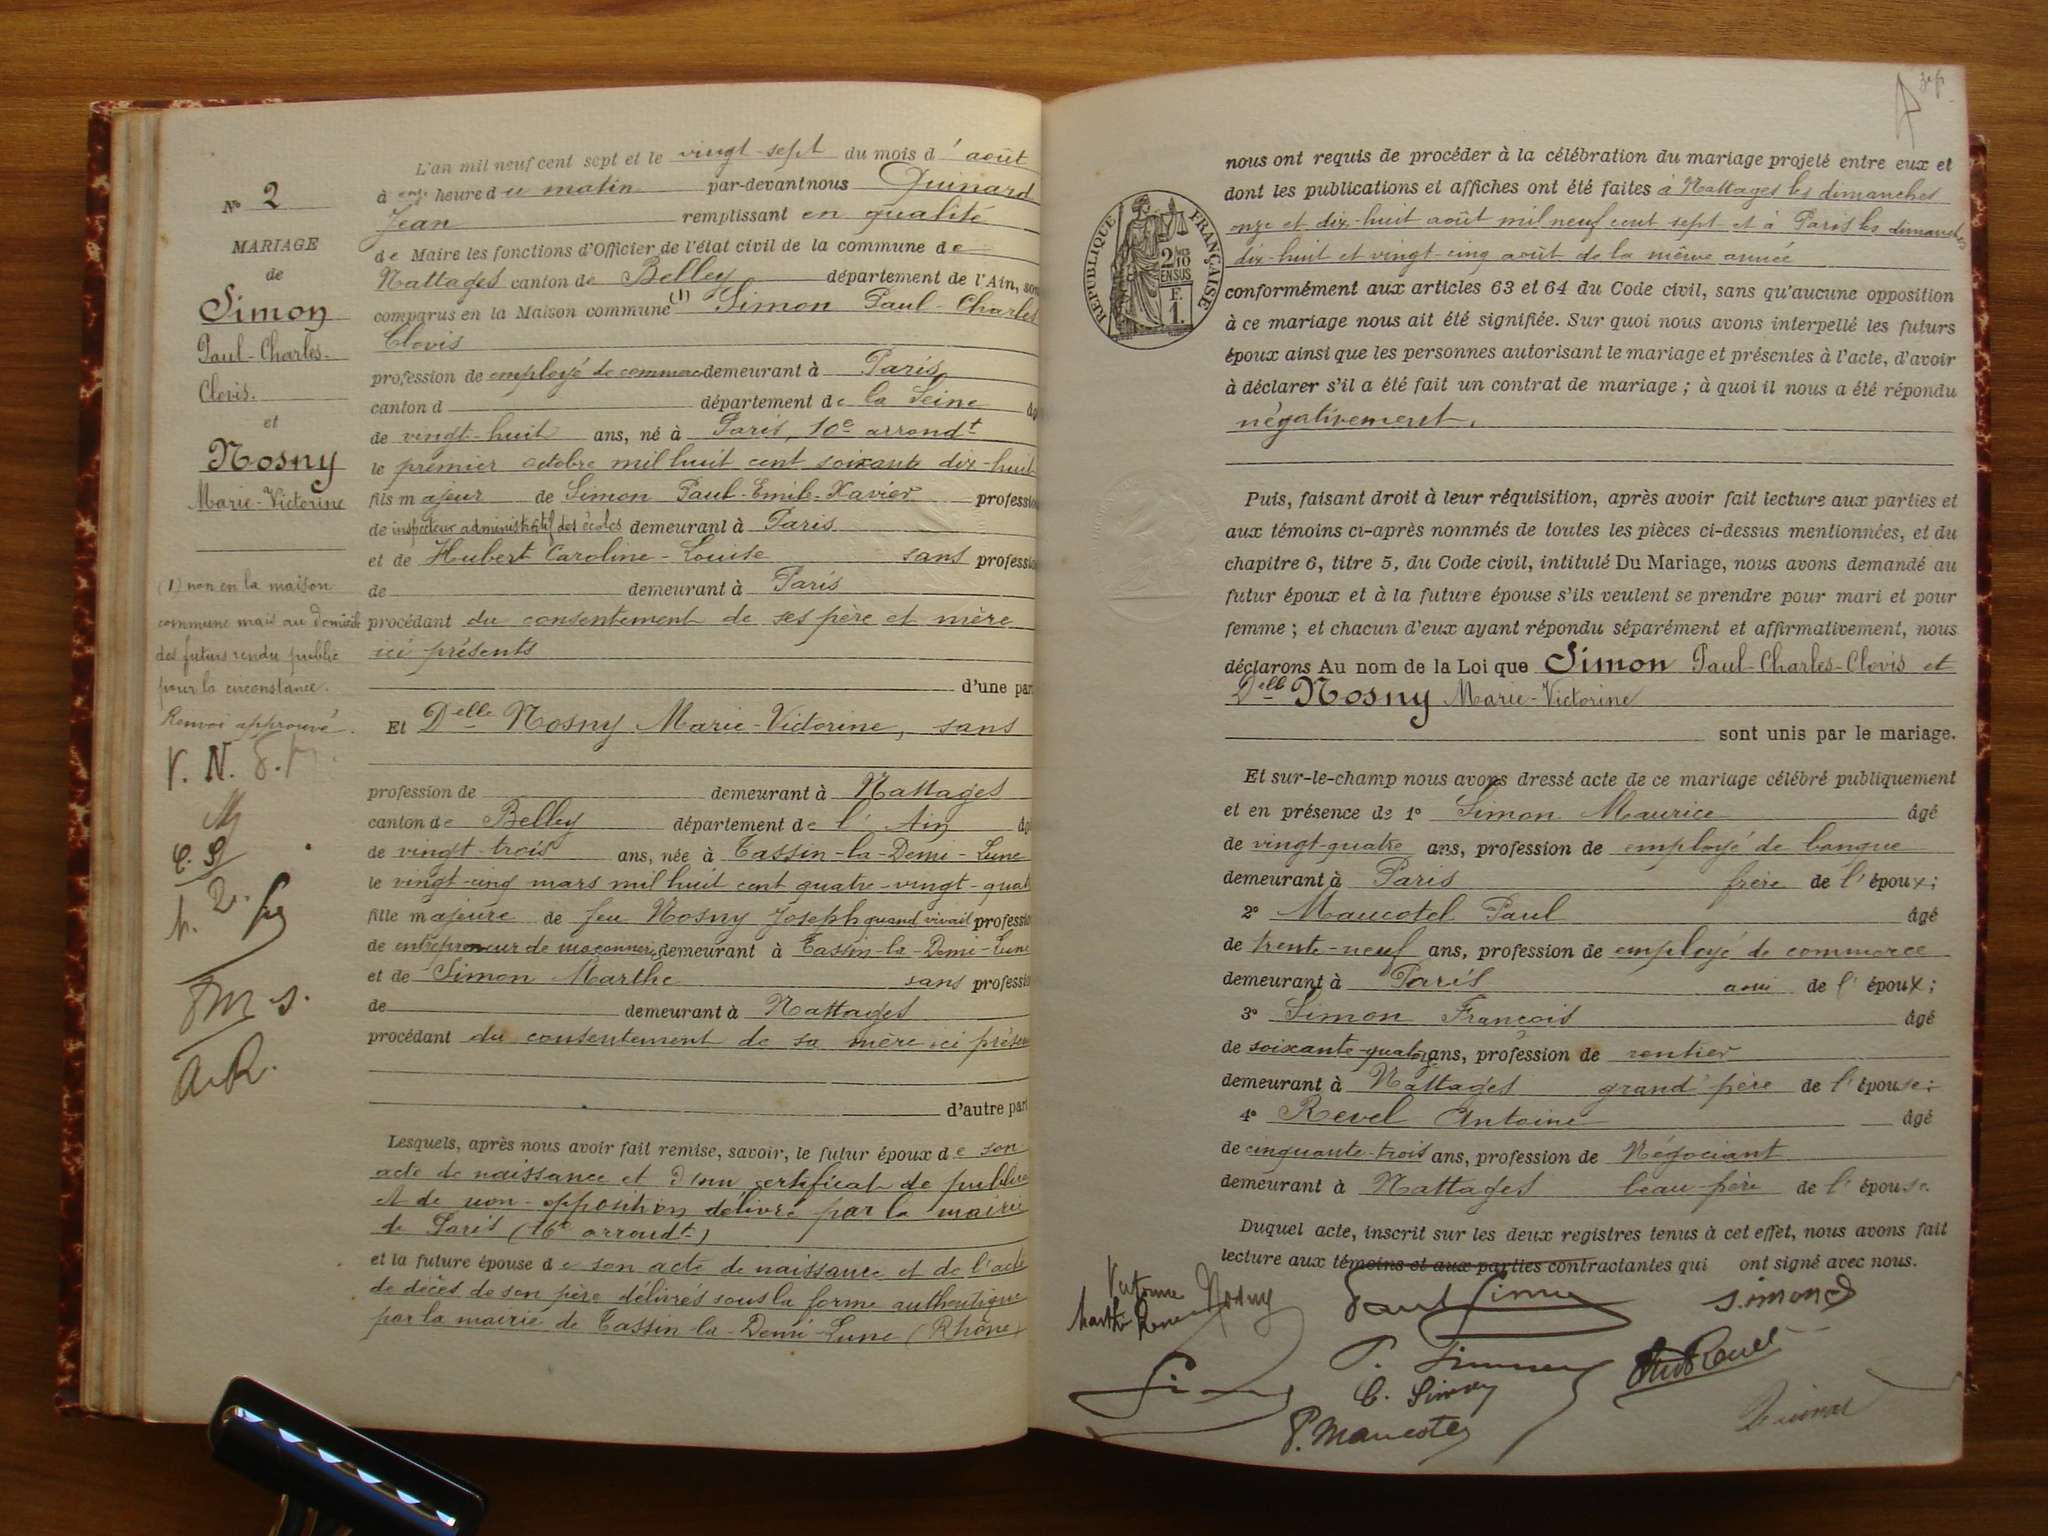 N° 2
MARIAGE
de
Simon
Paul-Charles-
Clovis.
et
Nosny
Marie-Victorine
(1) non en la maison
commune mais au domicile
des futurs rendu public
pour la circonstance.
Renvoi approuvé.
V. N.
C. S.
M S.
A. R.
L'an mil neuf cent sept et le vingt-sept du mois d'août
à onze heure du matin par-devant nous Guinard
Jean remplissant en qualité
de Maire les fonctions d'Officier de l'état civil de la commune de
Nattages canton de Belley département de l'Ain, sont
comparus en la Maison commune (1) Simon Paul-Charles
Clovis
profession de employé de commerce demeurant à Paris
canton d département de la Seine âgé
de vingt-huit ans, né à Paris, 10e arrondt
le premier octobre mil huit cent soixante dix-huit
fils majeur de Simon Paul-Emile-Xavier profession
de inspecteur administratif des écoles demeurant à Paris
et de Hubert Caroline-Louise sans profession
de demeurant à Paris
procédant du consentement de ses père et mère
ici présents
d'une part
Et Delle Nosny Marie-Victorine, sans
profession de demeurant à Nattages
canton de Belley département de l'Ain âgée
de vingt-trois ans, née à Tassin-la-Demi-Lune
le vingt-cinq mars mil huit cent quatre-vingt-quatre
fille majeure de feu Nosny Joseph quand vivait profession
de entrepreneur de maçonnerie demeurant à Tassin-la-Demi-Lune
et de Simon Marthe sans profession
de demeurant à Nattages
procédant du consentement de sa mère ici présente
d'autre part
Lesquels, après nous avoir fait remise, savoir, le futur époux de son
acte de naissance et d'un certificat de publication
et de non-opposition délivré par la mairie
de Paris (16e arrondt)
et la future épouse de son acte de naissance et de l'acte
de décès de son père délivrés sous la forme authentique
par la mairie de Tassin-la-Demi-Lune (Rhône)
RÉPUBLIQUE FRANÇAISE
2/10
EN SUS
F.
1.
nous ont requis de procéder à la célébration du mariage projeté entre eux et
dont les publications et affiches ont été faites à Nattages les dimanches
onze et dix-huit août mil neuf cent sept et à Paris les dimanches
dix-huit et vingt-cinq août de la même année
conformément aux articles 63 et 64 du Code civil, sans qu'aucune opposition
à ce mariage nous ait été signifiée. Sur quoi nous avons interpellé les futurs
époux ainsi que les personnes autorisant le mariage et présentes à l'acte, d'avoir
à déclarer s'il a été fait un contrat de mariage ; à quoi il nous a été répondu
négativement.
Puis, faisant droit à leur réquisition, après avoir fait lecture aux parties et
aux témoins ci-après nommés de toutes les pièces ci-dessus mentionnées, et du
chapitre 6, titre 5, du Code civil, intitulé Du Mariage, nous avons demandé au
futur époux et à la future épouse s'ils veulent se prendre pour mari et pour
femme ; et chacun d'eux ayant répondu séparément et affirmativement, nous
déclarons Au nom de la Loi que Simon Paul-Charles-Clovis et
Delle Nosny Marie-Victorine
sont unis par le mariage.
Et sur-le-champ nous avons dressé acte de ce mariage célébré publiquement
et en présence de 1° Simon Maurice âgé
de vingt-quatre ans, profession de employé de banque
demeurant à Paris frère de l'époux;
2° Maucotel Paul âgé
de trente-neuf ans, profession de employé de commerce
demeurant à Paris ami de l'époux;
3° Simon François âgé
de soixante-quatorze ans, profession de rentier
demeurant à Nattages grand'père de l'épouse;
4° Revel Antoine âgé
de cinquante-trois ans, profession de Négociant
demeurant à Nattages beau-père de l'épouse.
Duquel acte, inscrit sur les deux registres tenus à cet effet, nous avons fait
lecture aux témoins et aux parties contractantes qui ont signé avec nous.
Victorine Nosny Paul Simon Simon
P. Simon
C. Simon
P. Maucotel